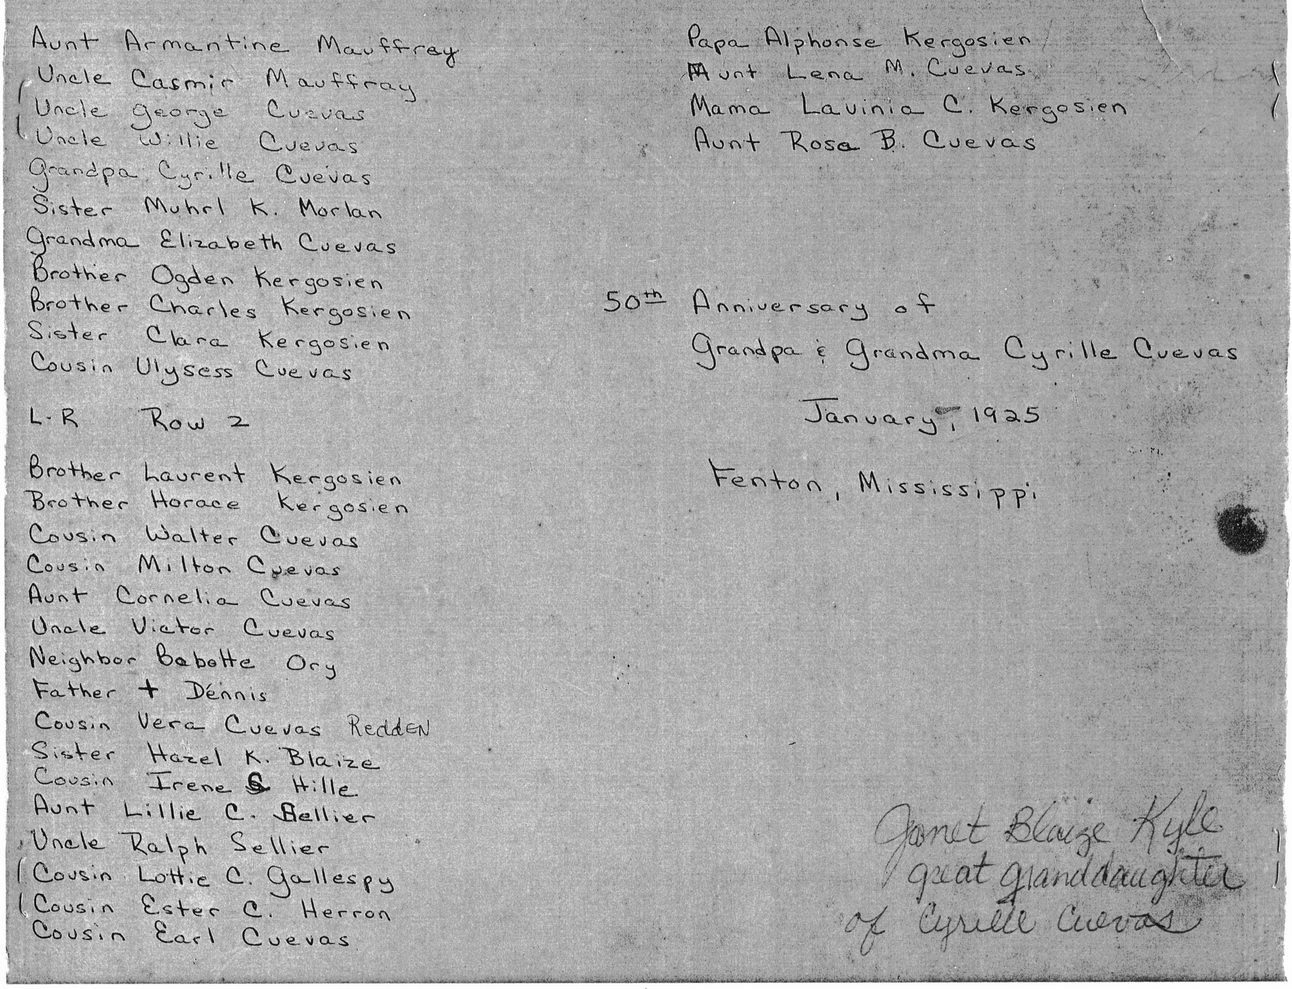 Aunt Armantine Mauffray
Uncle Casmir Mauffray
Uncle George Cuevas
Uncle Willie Cuevas
Grandpa Cyrille Cuevas
Sister Muhrl K. Morlan
Grandma Elizabeth Cuevas
Brother Ogden Kergosien
Brother Charles Kergosien
Sister Clara Kergosien
Cousin Ulysess Cuevas
L-R Row 2
Brother Laurent Kergosien
Brother Horace Kergosien
Cousin Walter Cuevas
Cousin Milton Cuevas
Aunt Cornelia Cuevas
Uncle Victor Cuevas
Neighbor Babette Ory
Father + Dennis
Cousin Vera Cuevas Redden
Sister Hazel K. Blaize
Cousin Irene C Hille
Aunt Lillie C. Sellier
Uncle Ralph Sellier
Cousin Lottie C. Gallespy
Cousin Ester C. Herron
Cousin Earl Cuevas
Papa Alphonse Kergosien
Aunt Lena M. Cuevas
Mama Lavinia C. Kergosien
Aunt Rosa B. Cuevas
50th Anniversary of
Grandpa & Grandma Cyrille Cuevas
January, 1925
Fenton, Mississippi
Janet Blaize Kyle
great granddaughter
of Cyrille Cuevas